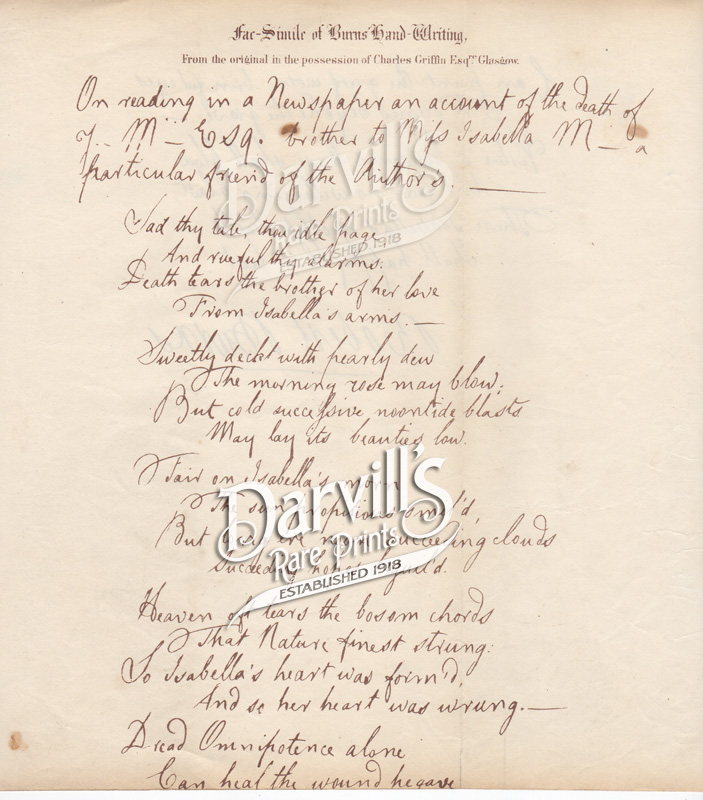 Fac-Simile of Burns' Hand-Writing,
From the original in the possession of Charles Griffin Esqr. Glasgow.
On reading in a Newspaper an account of the death of
J.. M— Esq. brother to Miss Isabella M— a
particular friend of the Author's. —
Sad thy tale, thou idle page
And rueful thy alarms:
Death tears the brother of her love
From Isabella's arms. —
Sweetly deckt with pearly dew
The morning rose may blow;
But cold successive noontide blasts
May lay its beauties low.
Fair on Isabella's morn
The sun propitious smil'd,
But ere noon succeeding clouds
Succeeding hopes
Heaven oft tears the bosom chords
That Nature finest strung:
So Isabella's heart was form'd,
And so her heart was wrung. —
Dread Omnipotence alone
Can heal the wound he gave
Darvill's
Rare Prints
ESTABLISHED 1918
Darvill's
Rare Prints
ESTABLISHED 1918